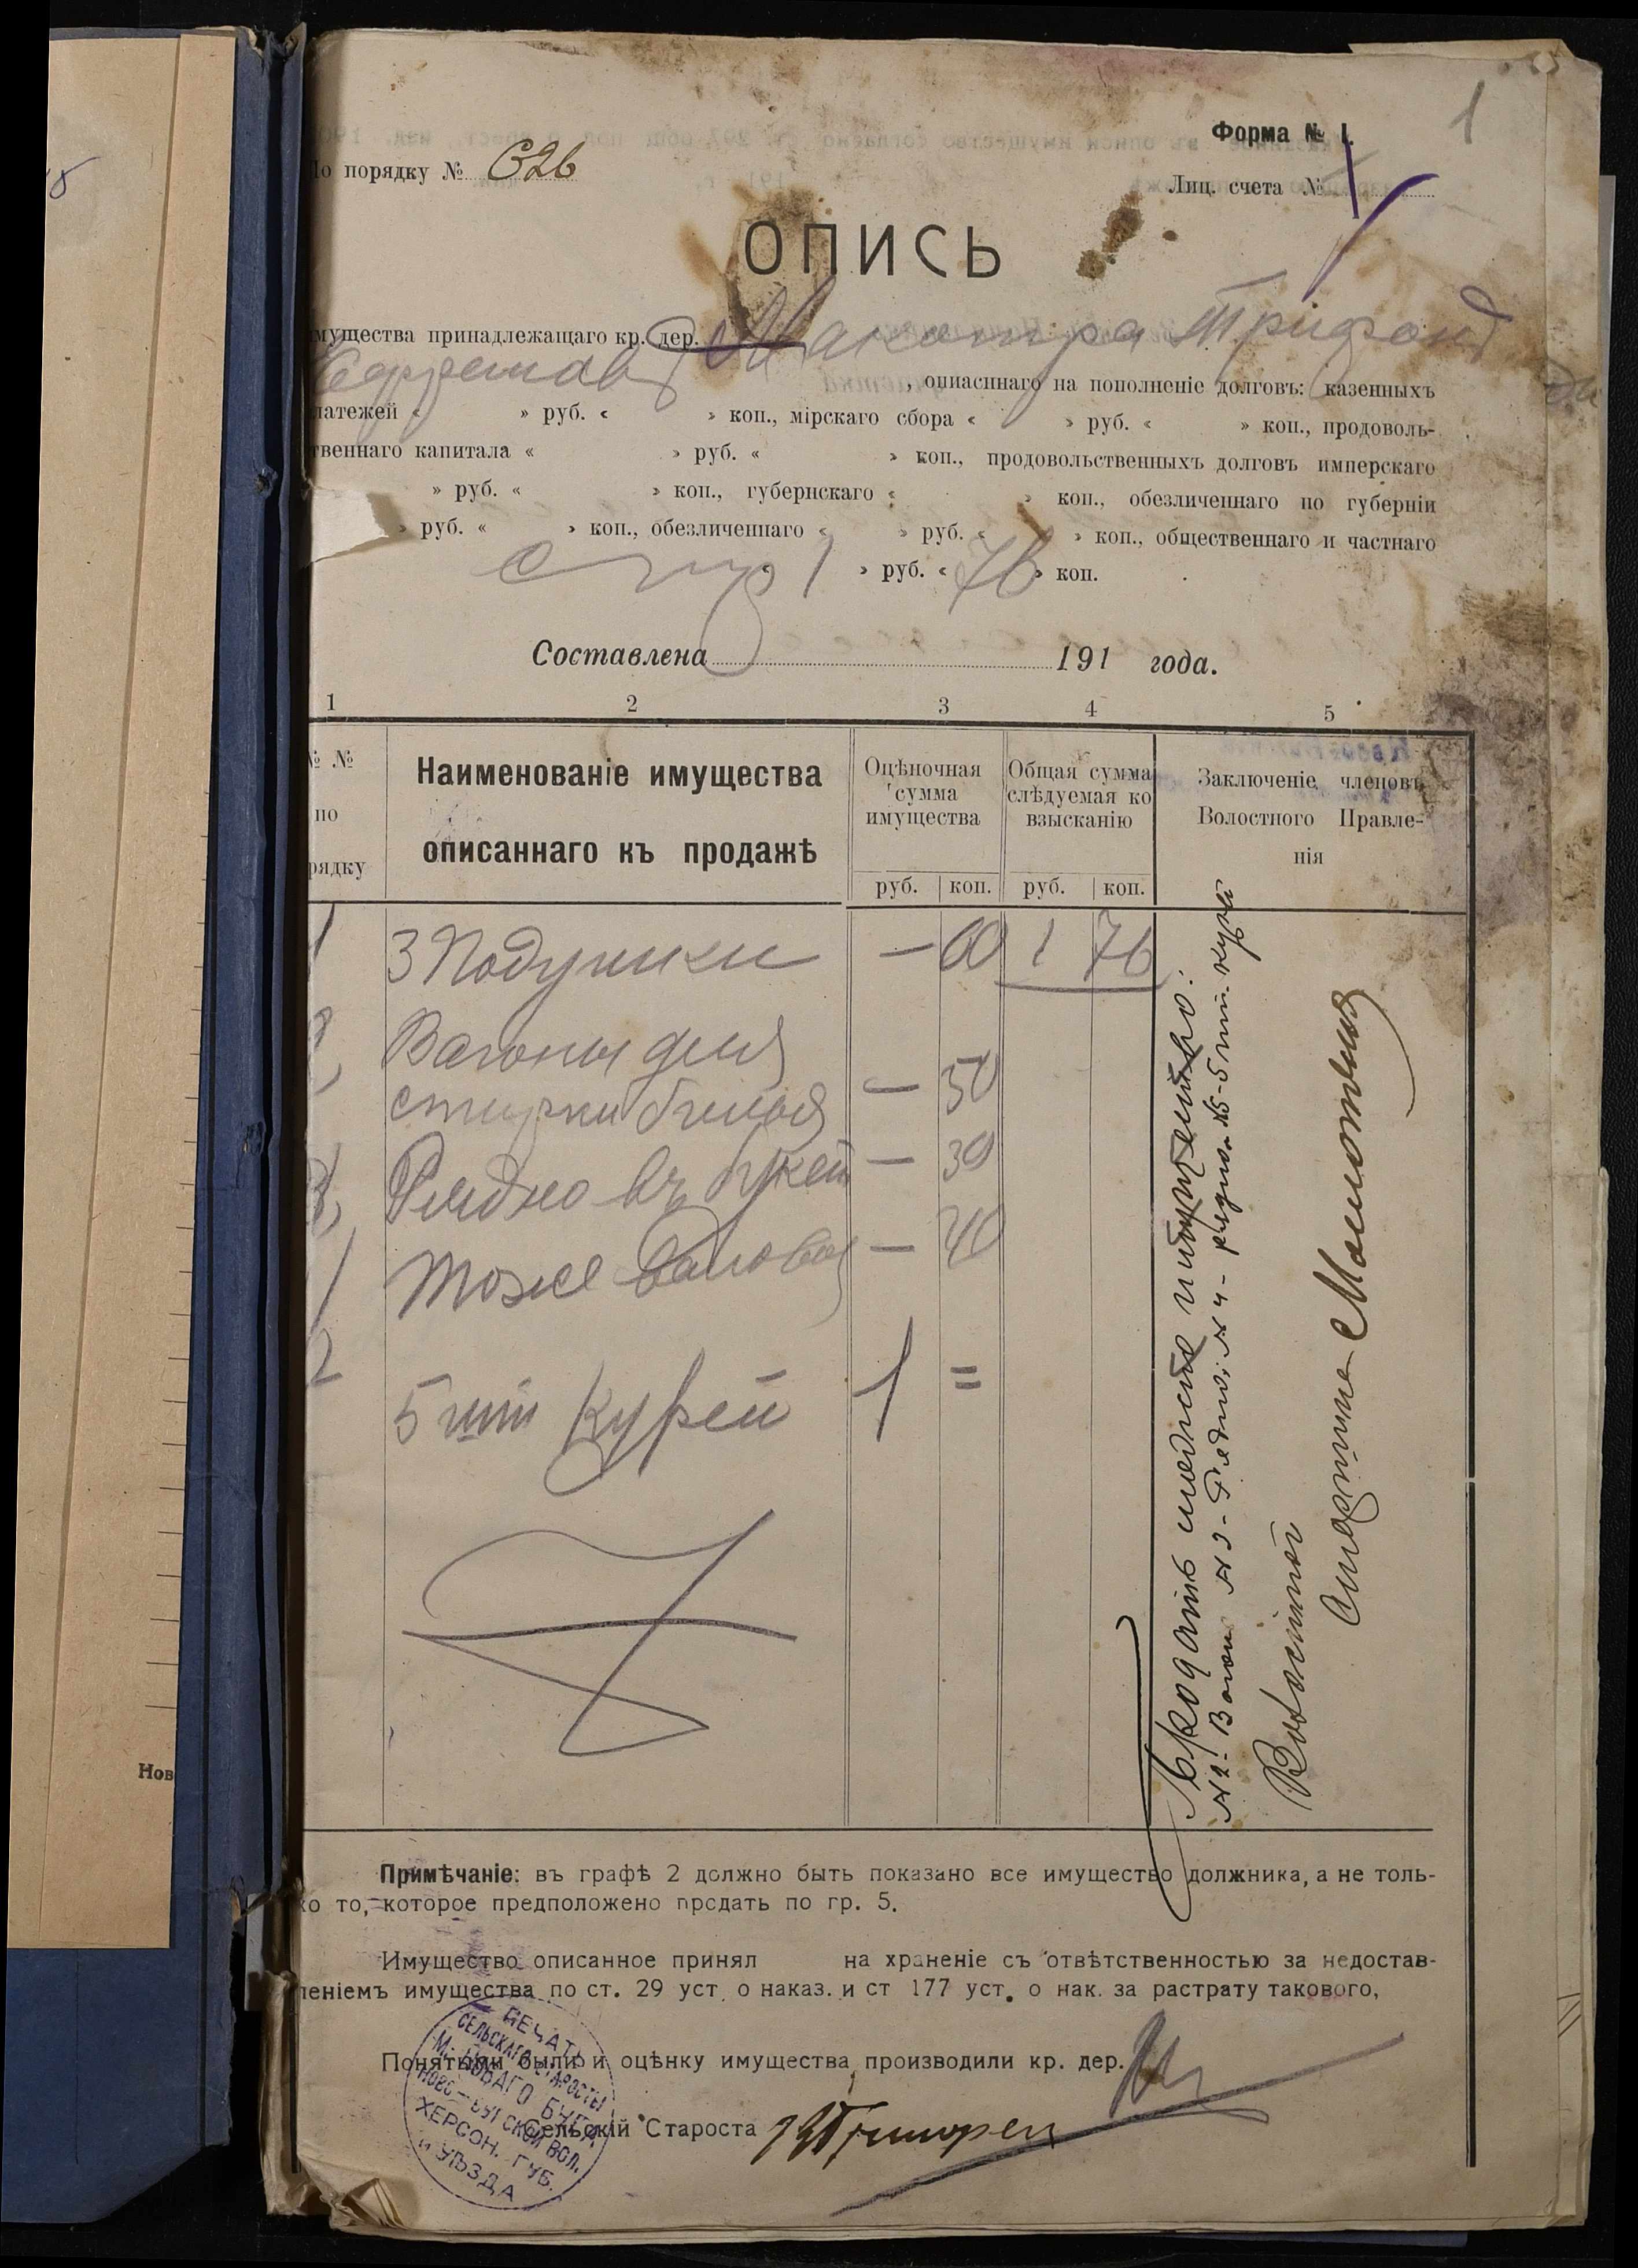 1
Форма № 1.
По порядку № 626
Лиц. счета №
ОПИСЬ
мущества принадлежащаго кр. дер. Трифон
, описаннаго на пополненіе долговъ: казенныхъ
латежей « » руб. « » коп., мірскаго сбора « » руб. « » коп., продоволь-
твеннаго капитала « » руб. « » коп., продовольственныхъ долговъ имперскаго
» руб. « » коп., губернскаго « » коп., обезличеннаго по губерніи
» руб. « » коп., обезличеннаго « » руб. « » коп., общественнаго и частнаго
1 » руб. « 76 » коп.
Составлена 191 года.
1 2 3 4 5
№ №
по
рядку
Наименованіе имущества
описаннаго къ продажѣ
Оцѣночная
сумма
имущества
руб. коп.
Общая сумма
слѣдуемая ко
взысканію
руб. коп.
Заключеніе членовъ
Волостного Правле-
нія
1 3 Подушки — 60 1 76
2, Вагоны для
стирки бѣлья — 50
3, Рядно въ — 30
Тоже — 40
5 шт курей 1 =
Продать слѣдуетъ имущество:
№ 2- Ваган № 3- Рядно; № 4- рядно № 5-5 шт. курей
Волостной
Старшина
Примѣчаніе: въ графѣ 2 должно быть показано все имущество должника, а не толь-
ко то, которое предположено продать по гр. 5.
Имущество описанное принял на храненіе съ отвѣтственностью за недостав-
леніемъ имущества по ст. 29 уст. о наказ. и ст 177 уст. о нак. за растрату такового,
Понятыми были и оцѣнку имущества производили кр. дер.
Сельскій Староста
ПЕЧАТЬ
СЕЛЬСКАГО СТАРОСТЫ
М. НОВАГО БУГА
НОВО-БУГСКОЙ ВОЛ.
ХЕРСОН. ГУБ.
и УѢЗДА
Нов